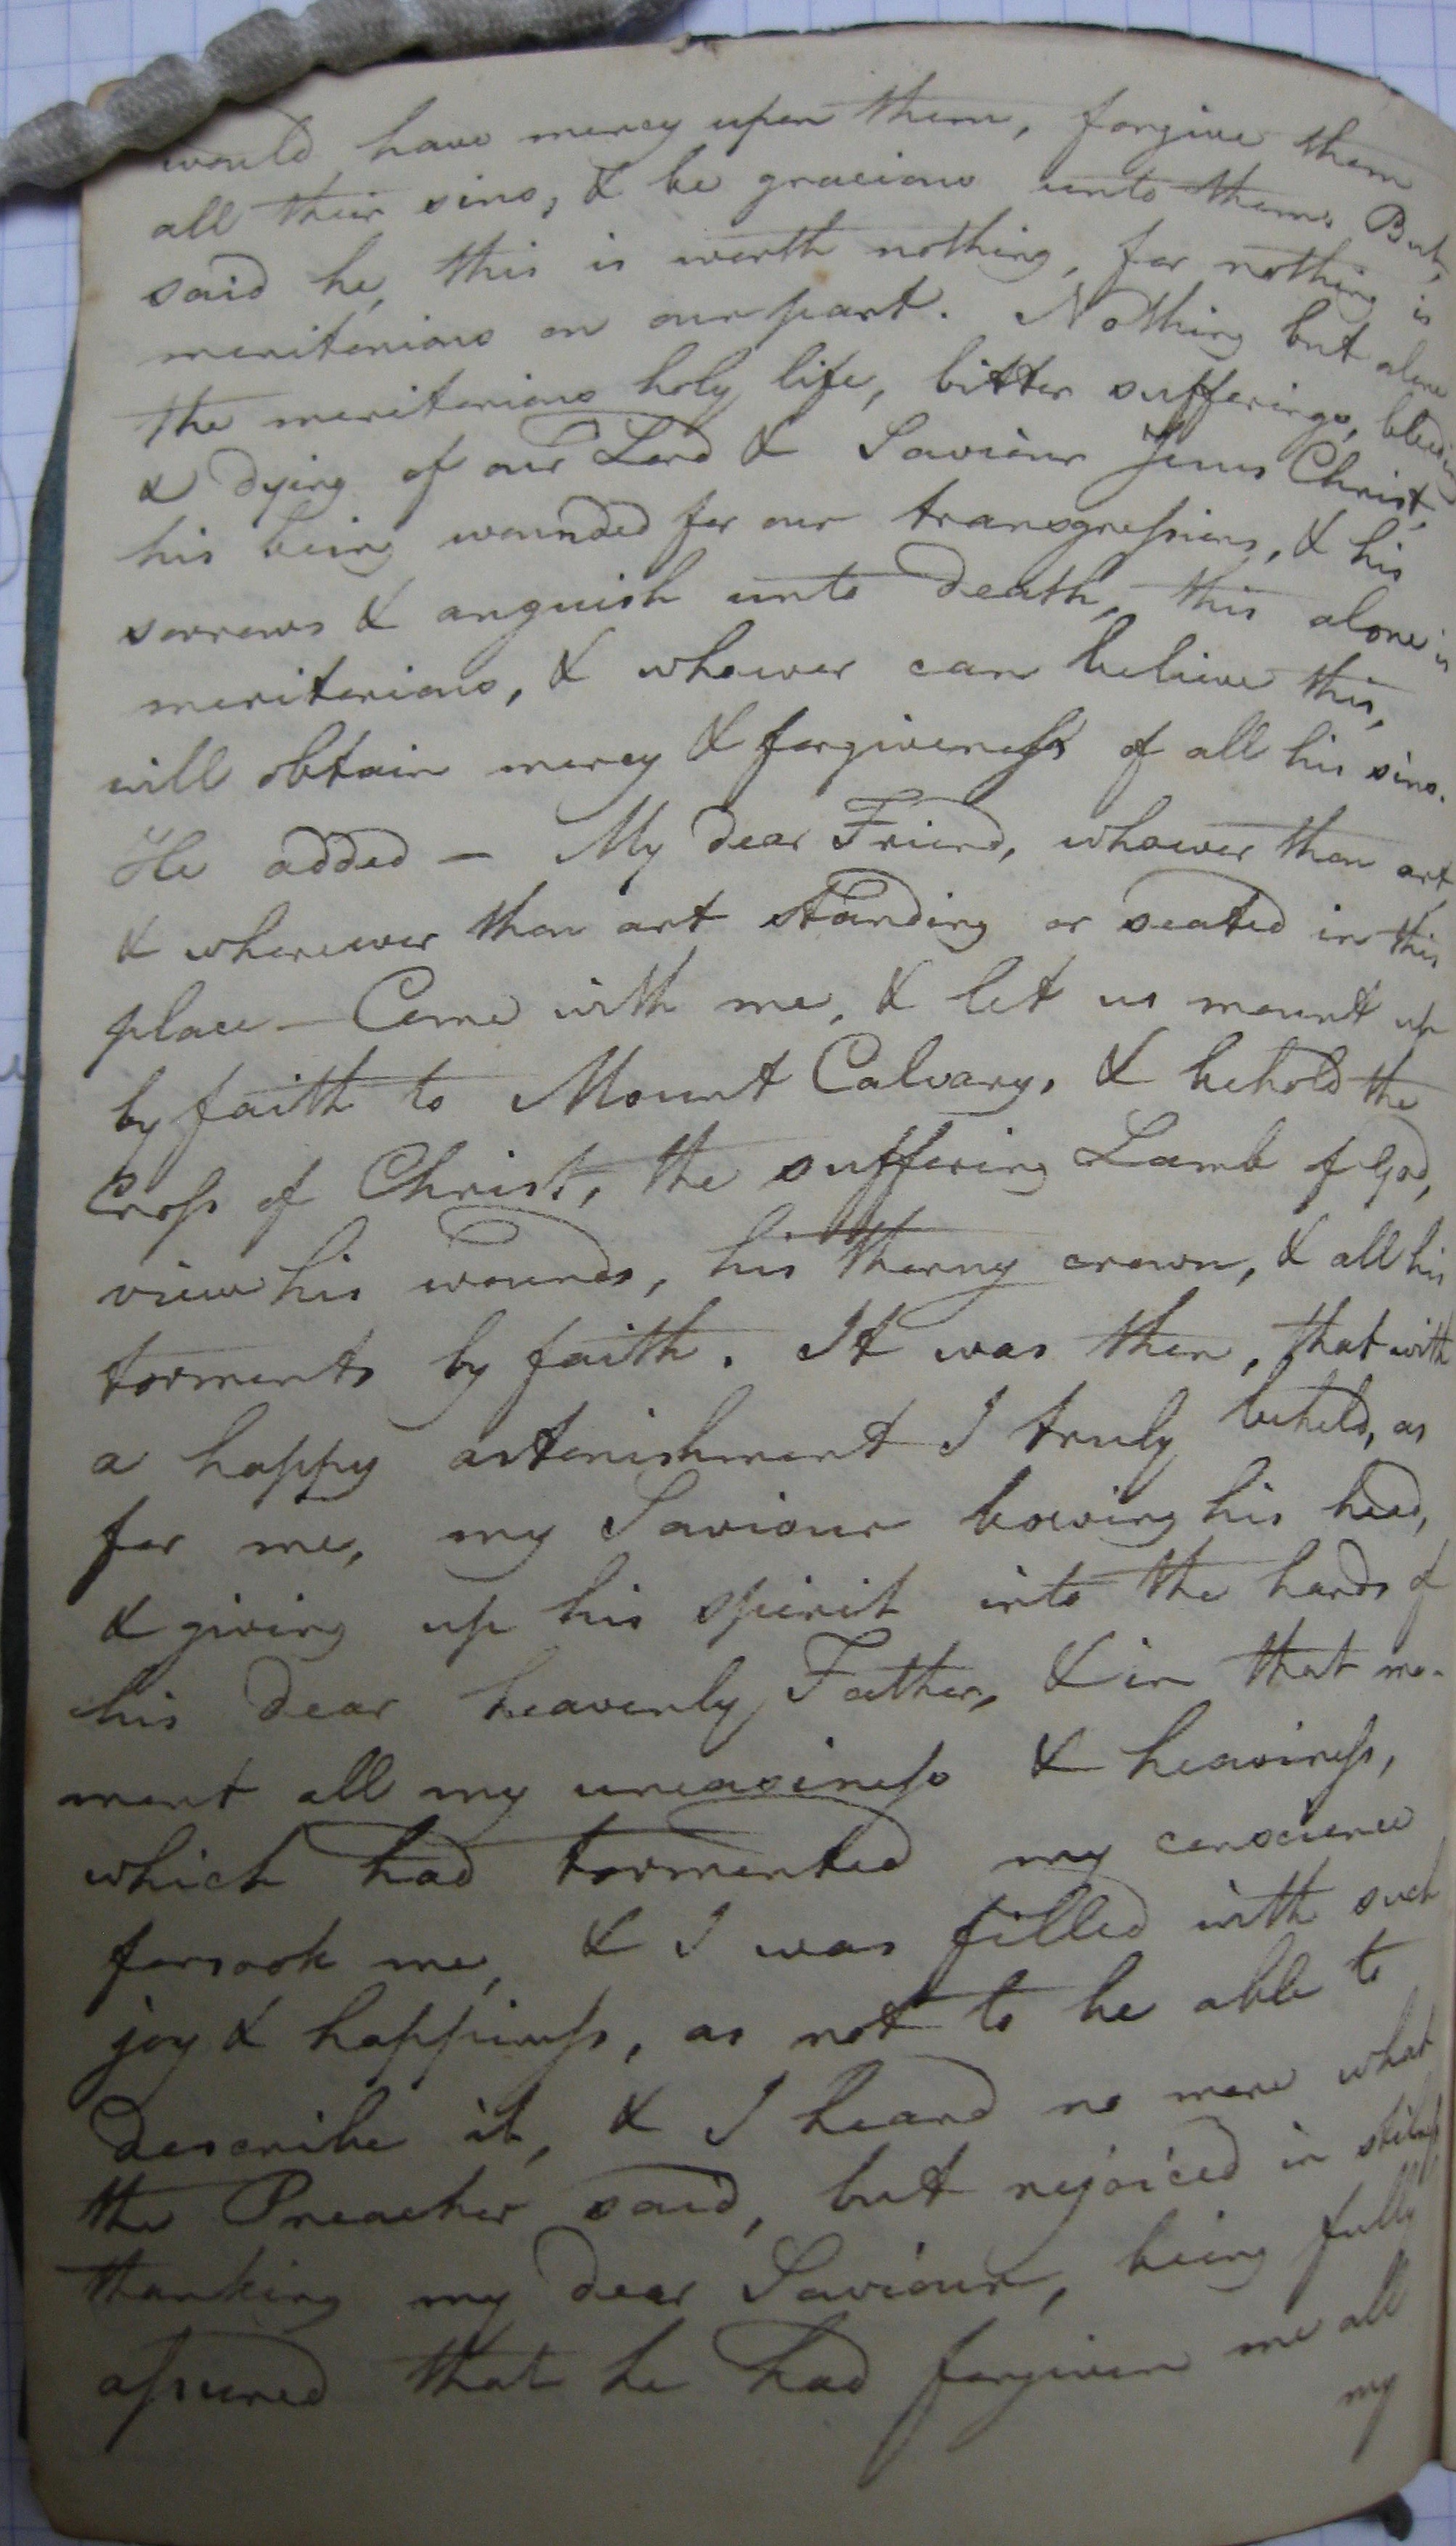 would have mercy upon them, forgive them
all their sins, & be gracious unto them. But,
said he, this is worth nothing, for nothing is
meritorious on our part. Nothing but alone
the meritorious holy life, bitter sufferings, bleeding
& dying of our Lord & Saviour Jesus Christ,
his being wounded for our transgreſsions, & his
sorrows & anguish unto death, this alone is
meritorious, & whoever can believe this,
will obtain mercy & forgiveneſs of all his sins.
He added — My dear Friend, whoever thou art,
& wherever thou art standing or seated in this
place — Come with me, & let us mount up
by faith to Mount Calvary, & behold the
Croſs of Christ, the suffering Lamb of God,
view his wounds, his thorny crown, & all his
torments by faith. It was then, that with
a happy astonishment I truly beheld, as
for me, my Saviour bowing his head,
& giving up his spirit into the hands of
his dear heavenly Father, & in that mo-
ment all my uneasineſs & heavineſs,
which had tormented my conscience
forsook me, & I was filled with such
joy & happineſs, as not to be able to
describe it, & I heard no more what
the Preacher said, but rejoiced in stilneſs
thanking my dear Saviour, being fully
aſsured that he had forgiven me all
my